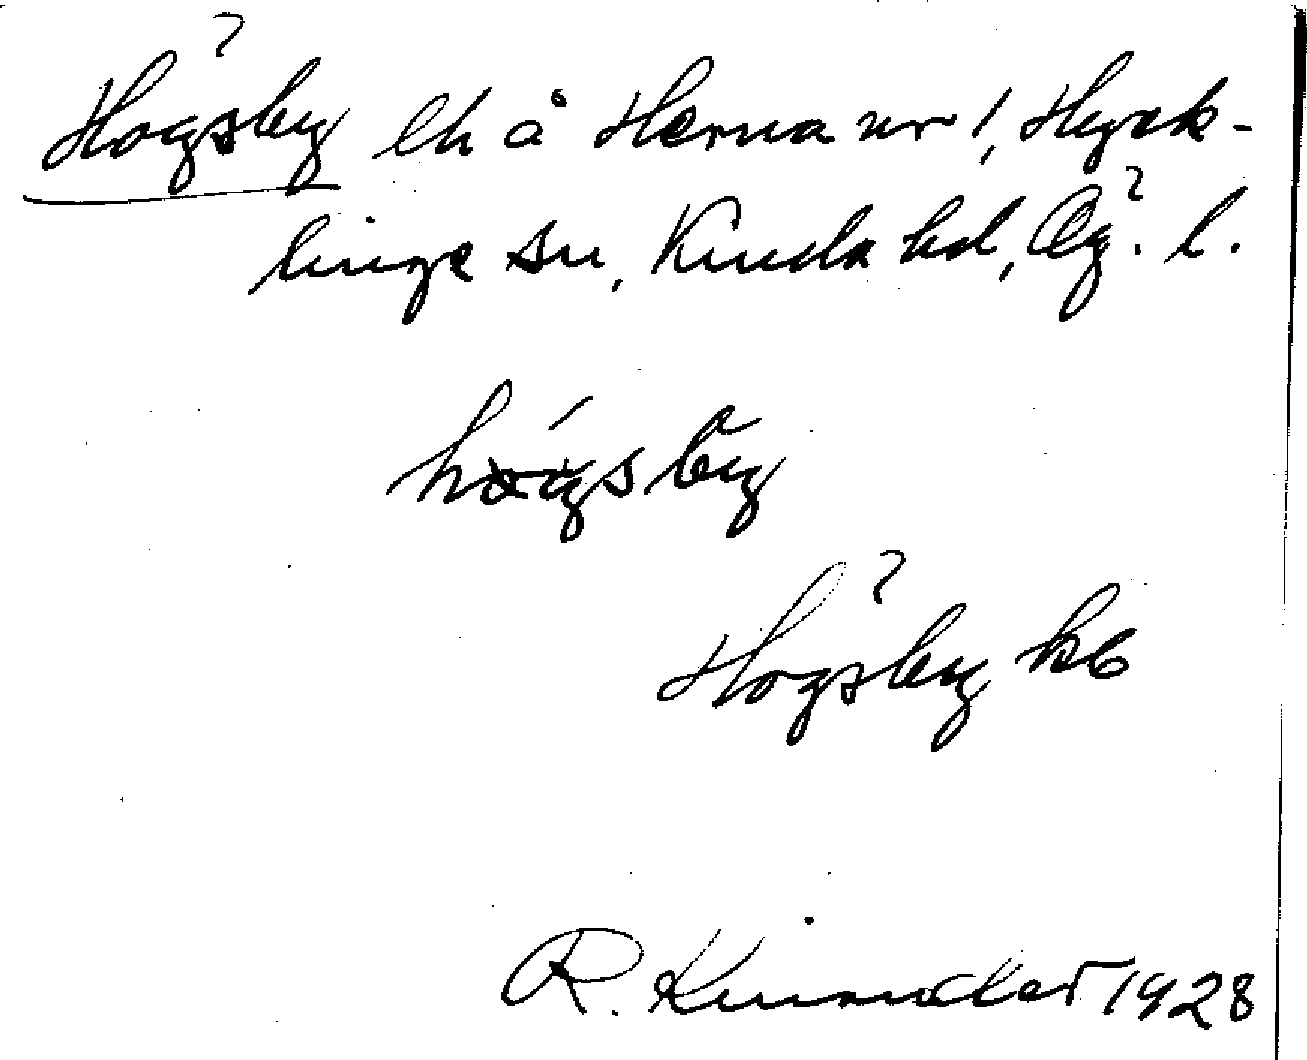 Högsby lh å Herna nr 1, Hyck-
linge sn, Kinda hd, Ög. l.
högsby
Högsby kb
R. 1928